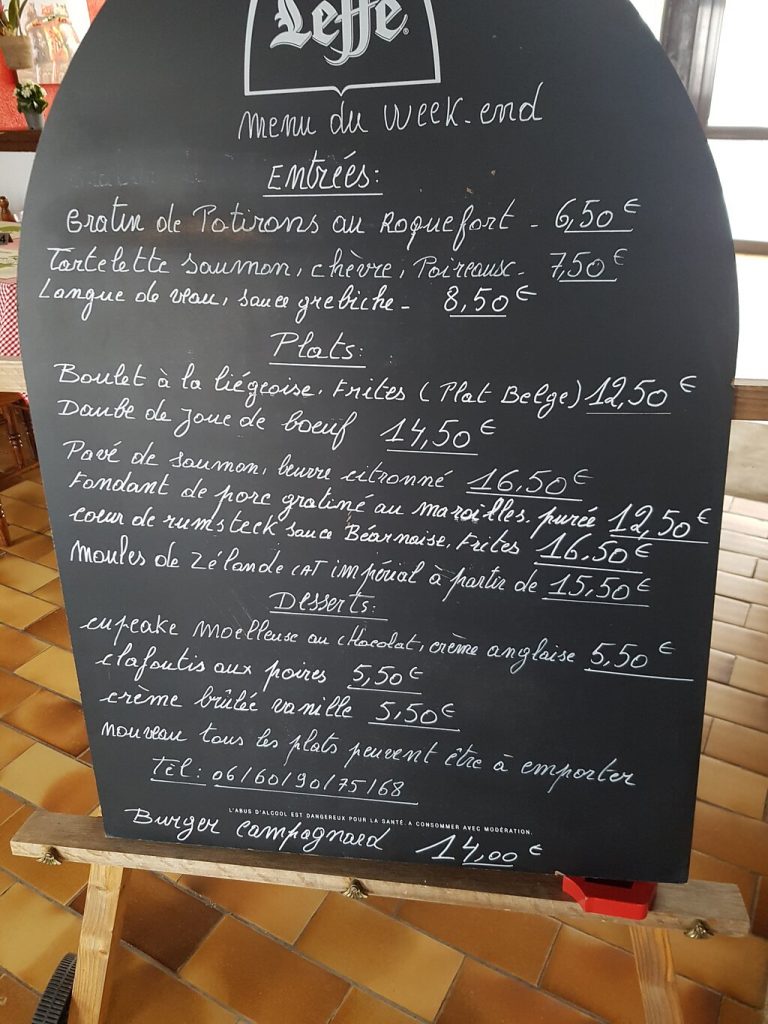 Leffe
menu du week-end
Entrées:
Gratin de Potirons au Roquefort - 6,50 €
Tartelette saumon, chèvre, Poireaux - 7,50 €
Langue de veau, sauce grebiche - 8,50 €
Plats:
Boulet à la liégeoise, Frites (Plat Belge) 12,50 €
Daube de Joue de boeuf 14,50 €
Pavé de saumon, beurre citronné 16,50 €
Fondant de porc gratiné au maroilles, purée 12,50 €
coeur de rumsteck sauce Béarnaise, Frites 16,50 €
moules de Zélande CAT impérial à partir de 15,50 €
Desserts:
cupcake moelleuse au chocolat, crème anglaise 5,50 €
clafoutis aux poires 5,50 €
crème brûlée vanille 5,50 €
nouveau tous les plats peuvent être à emporter
Tèl: 06/60/90/75/68
L'ABUS D'ALCOOL EST DANGEREUX POUR LA SANTÉ. A CONSOMMER AVEC MODÉRATION.
Burger campagnard 14,00 €